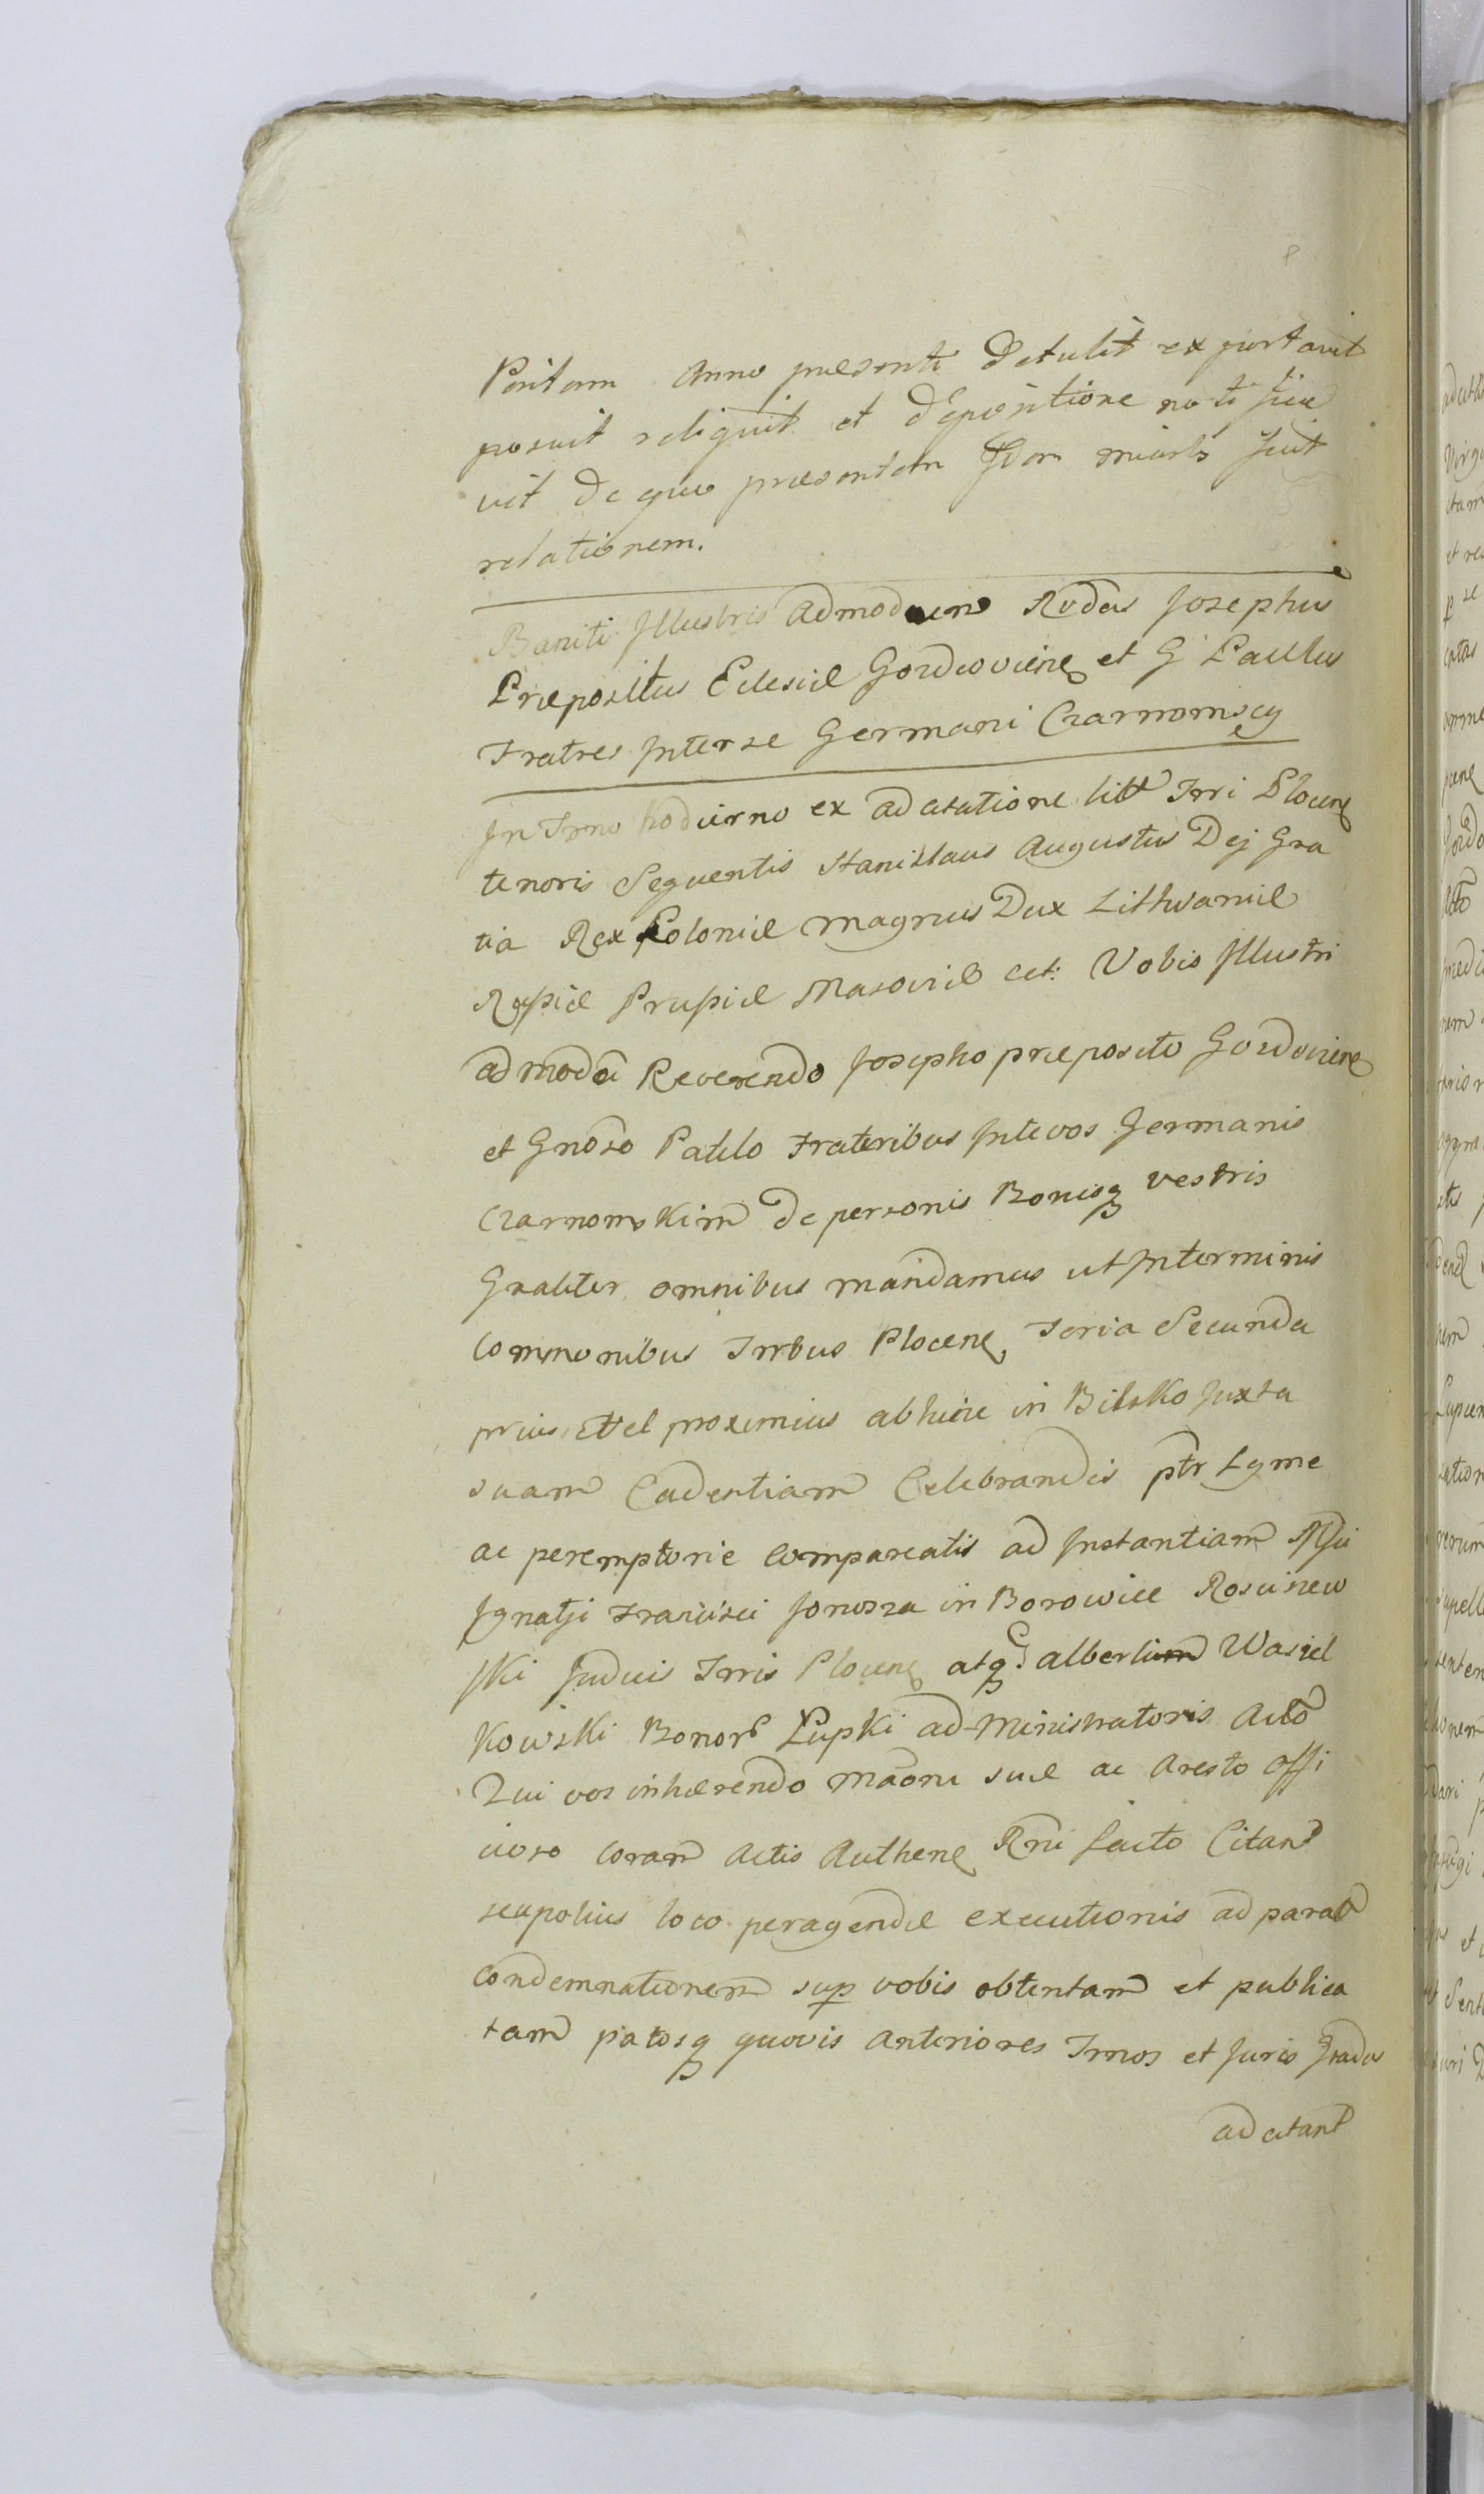 Anno præsenti detulit exportavit
posuit reliquit et depositione notifica
vit de quo præsentem fecit
relationem.
Baniti Illustris Admodum Rndus Josephus
Præpositus Eclesiæ Gordoviene et G Paullus
Fratres Interse Germani Czarnomscy
In Trno hodierno ex adcitatione litt Trri Plocene
tenoris Sequentis Stanislaus Augustus Dej Gra
tia Rex Poloniæ Magnus Dux Lithvaniæ
Russiæ Prussiæ Masoviæ cet: Vobis Illustri
admodū Reverendo Josepho præposito Gordoviene
et Gnoso Pallo Frateribus Intevos Germanis
Czarnomskim de personis Bonisq vestris
Gnaliter omnibus mandamus ut Interminis
Commonibus Trrbus Plocene Feria Secunda
prius et vel proximius abhinc in Bilsko Juxta
suam Cadentiam Celebrandis ptr Lgme
ac peremptorie compareatis ad Instantiam
Ignatji Francisci Jonosza in Borowice Rosciszew
ski Judicis Trris Plocene atq G alberti Wasiel
kowski Bonor Łupki ad-Ministratoris Acto
Qui vos inhærendo Maoni suæ ac Aresto offi
cioso coram Actis Authene Rni facto Citant
seupotius loco peragendæ executionis ad para
condemnationem sup vobis obtentam et publica
tam patosq quovis anteriores Trnos et Juris Gradus
adcitant